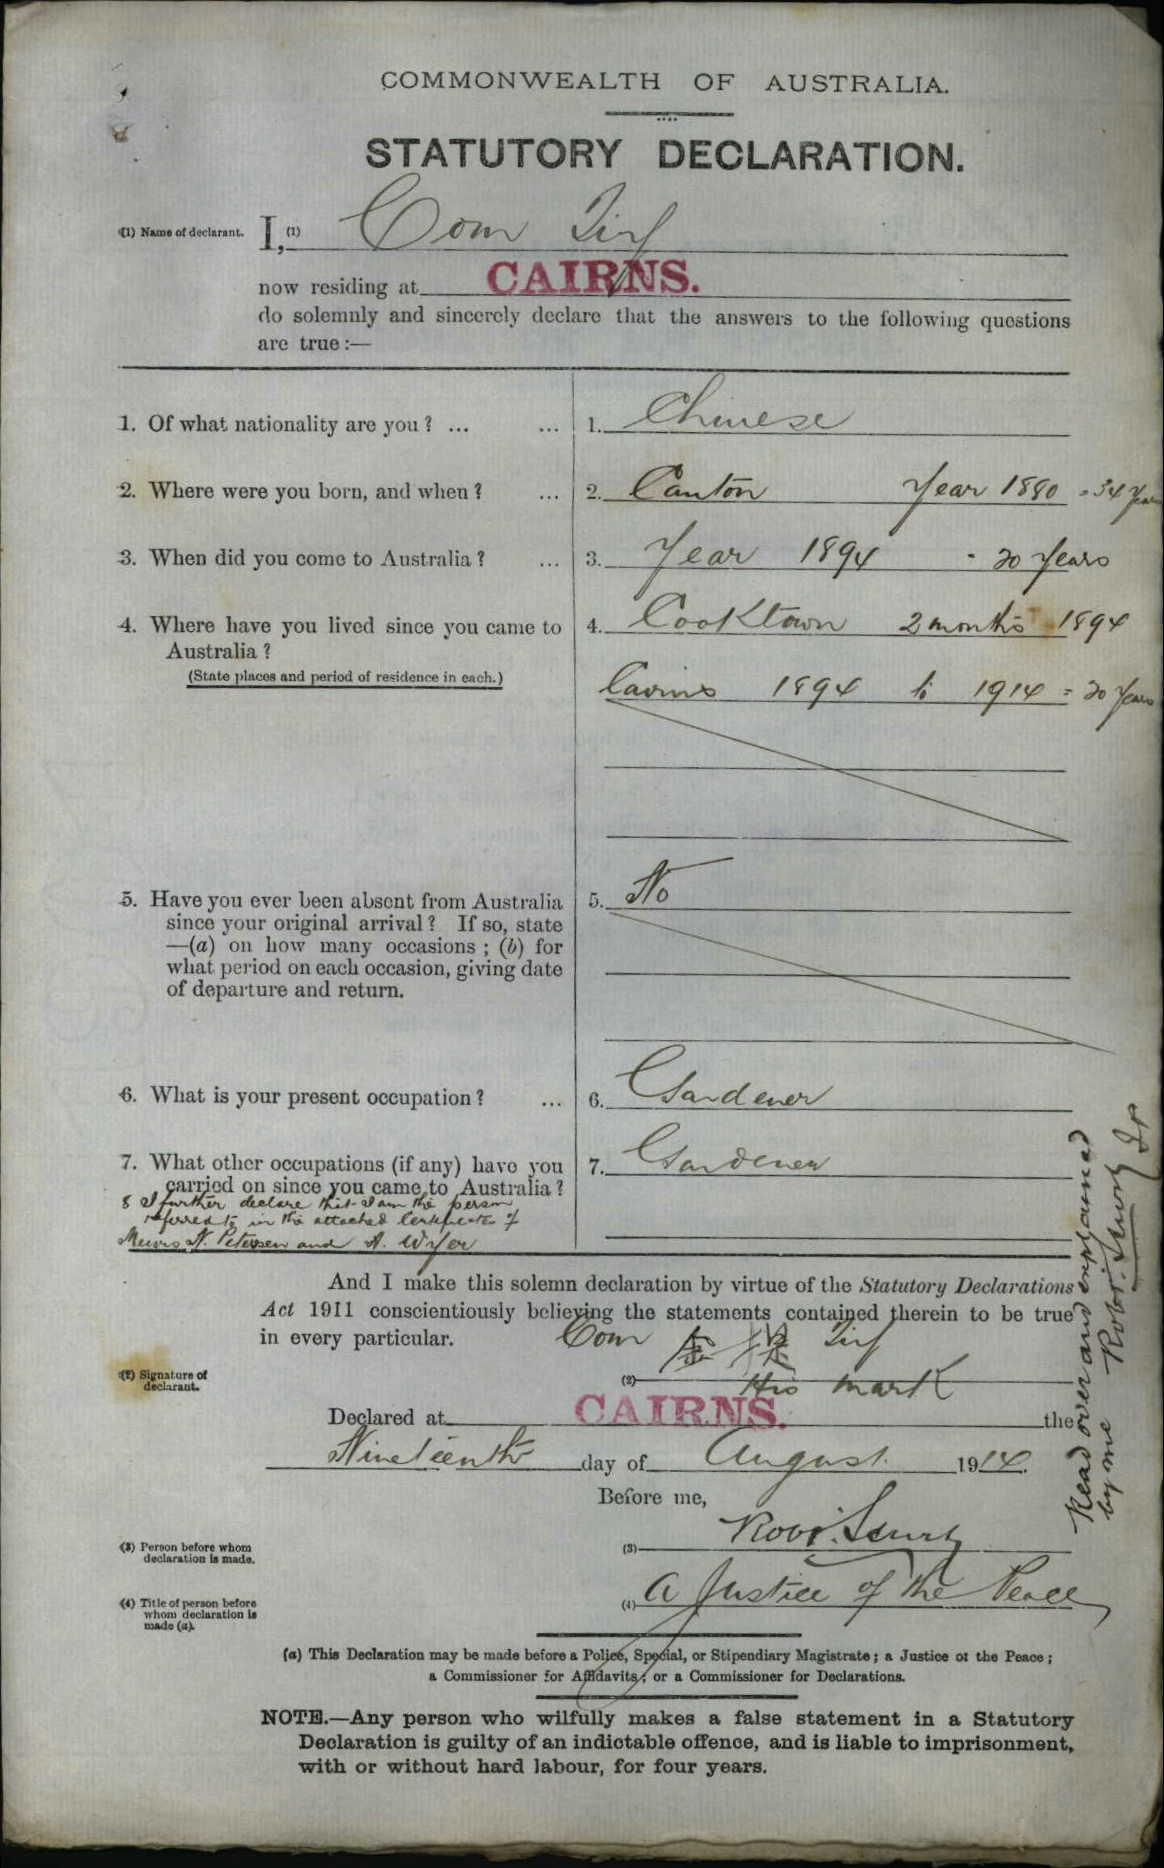 COMMONWEALTH OF AUSTRALIA.
STATUTORY DECLARATION.
(1) Name of declarant. I, (1) Com
now residing at CAIRNS.
do solemnly and sincerely declare that the answers to the following questions
are true :—
1. Of what nationality are you ? ... ... 1. Chinese
2. Where were you born, and when ? ... 2. Canton Year 1880 = 34 Years
3. When did you come to Australia ? ... 3. Year 1894 - 20 Years
4. Where have you lived since you came to 4. Cooktown 2 months 1894
Australia ?
(State places and period of residence in each.)
Cairns 1894 to 1914 = 20 Years
5. Have you ever been absent from Australia 5. No
since your original arrival ? If so, state
—(a) on how many occasions ; (b) for
what period on each occasion, giving date
of departure and return.
6. What is your present occupation ? ... 6. Gardener
7. What other occupations (if any) have you 7. Gardener
carried on since you came to Australia ?
8 I further declare that I am the person
referred to in the attached Certificates of
Messrs N. Petersen and A. Wyer
And I make this solemn declaration by virtue of the Statutory Declarations
Act 1911 conscientiously believing the statements contained therein to be true
in every particular. Com
(2) Signature of
declarant.
(2) His mark
Declared at CAIRNS. the
Nineteenth day of August 1914.
Before me,
(3) Person before whom
declaration is made.
(3) Robt.
(4) Title of person before
whom declaration is
made (a).
(4) A Justice of the Peace
Read over and explained
by me Robt. JP
(a) This Declaration may be made before a Police, Special, or Stipendiary Magistrate ; a Justice of the Peace ;
a Commissioner for Affidavits ; or a Commissioner for Declarations.
NOTE.—Any person who wilfully makes a false statement in a Statutory
Declaration is guilty of an indictable offence, and is liable to imprisonment,
with or without hard labour, for four years.